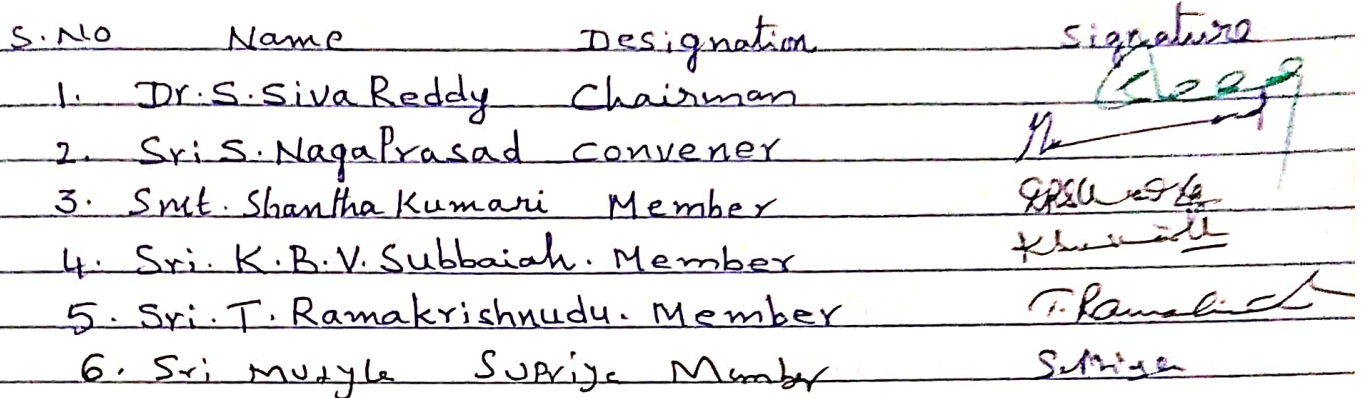 S.No Name Designation Signature
1. Dr.S.Siva Reddy Chairman
2. Sri S. NagaPrasad convener
3. Smt. Shantha Kumari Member
4. Sri. K.B.V. Subbaiah. Member
5. Sri. T. Ramakrishnudu. Member T. Ramakrish
6. Sri Mutyla Supriya Member S. Priya